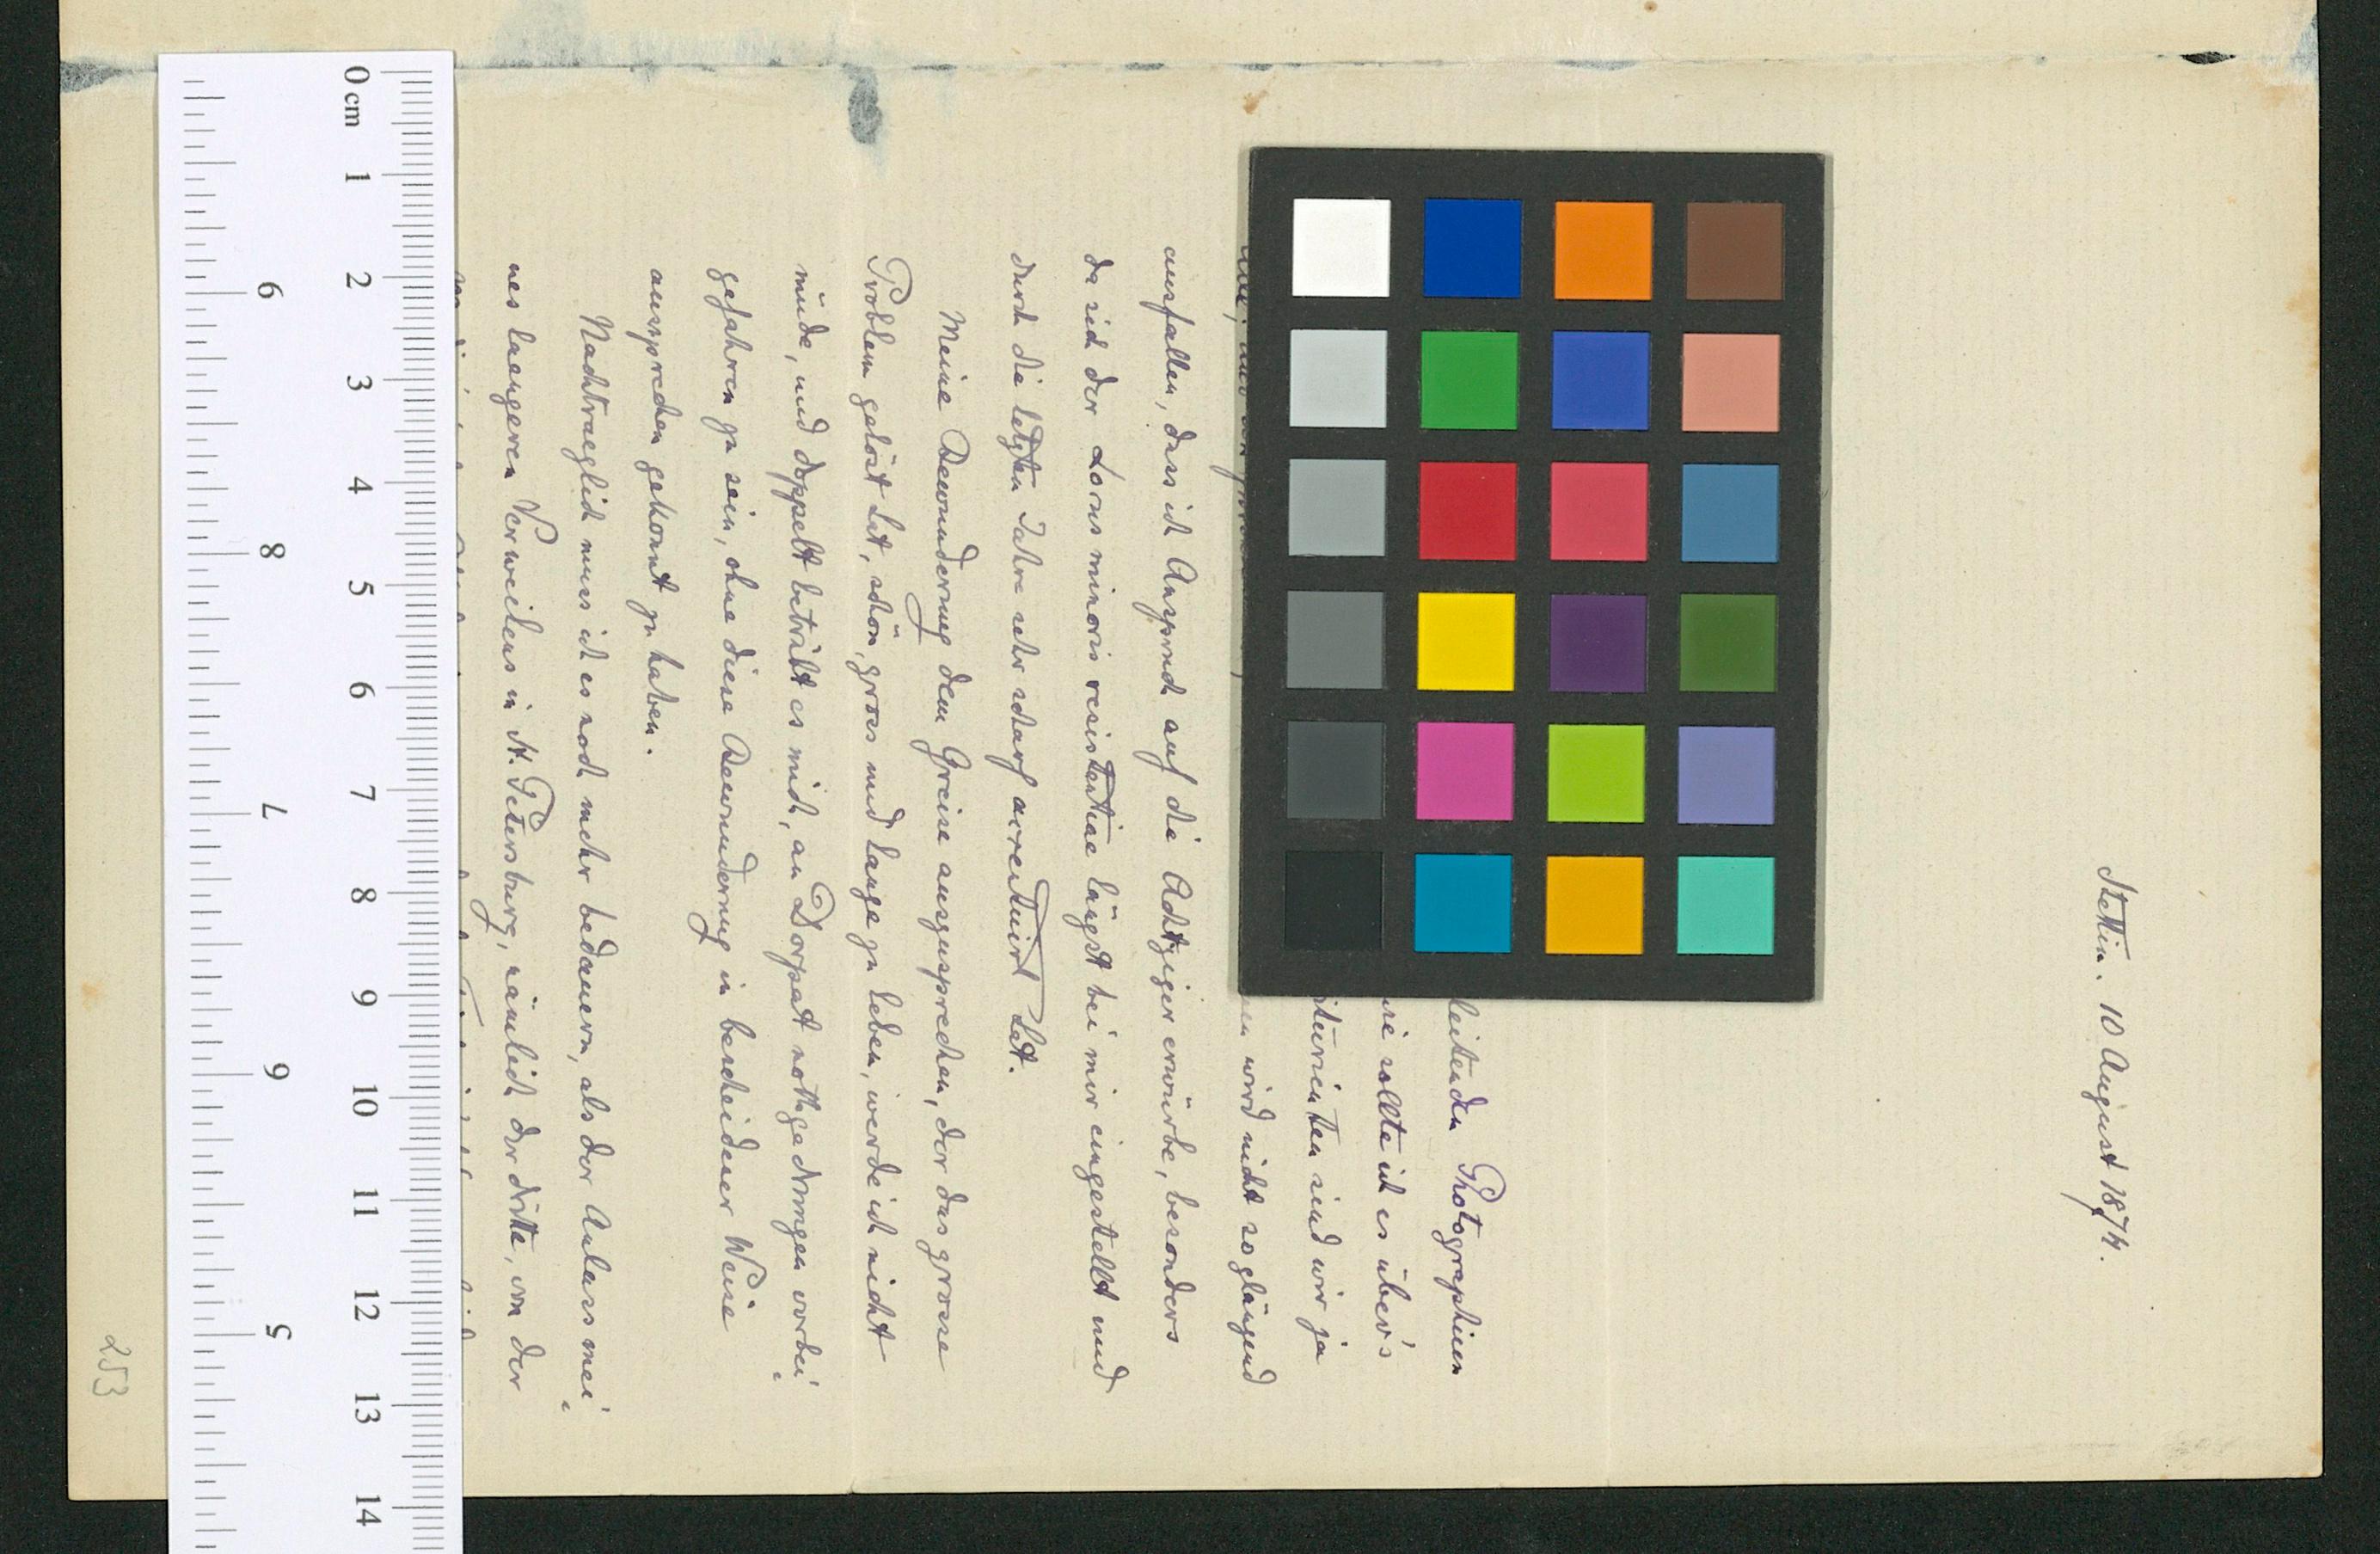 Stettin. 10 August 1874.
leitenden Photographieen
sollte ich es über's
sind wir ja
wird nicht so glänzend
ausfallen, dass ich Anspruch auf die Achtziger erwürbe, besonders
da sich der locus minoris resistentiae längst bei mir eingestellt und
durch die letzten Jahre sehr scharf accentuirt hat.
Meine Bewunderung dem Greise auszusprechen, der das grosse
Problem gelöst hat, schön, gross und lange zu leben, werde ich nicht
müde, und doppelt betrübt es mich, an Dorpat nothgedrungen vorbei
gefahren zu sein, ohne diese Bewunderung in bescheidener Weise
aussprechen gekonnt zu haben.
Nachtraeglich muss ich es noch mehr bedauern, als der Anlass mei-
nes laengeren Verweilens in St. Petersburg, nämlich der dritte, von der
253
0 cm 1 2 3 4 5 6 7 8 9 10 11 12 13 14
9 8 7 6 5